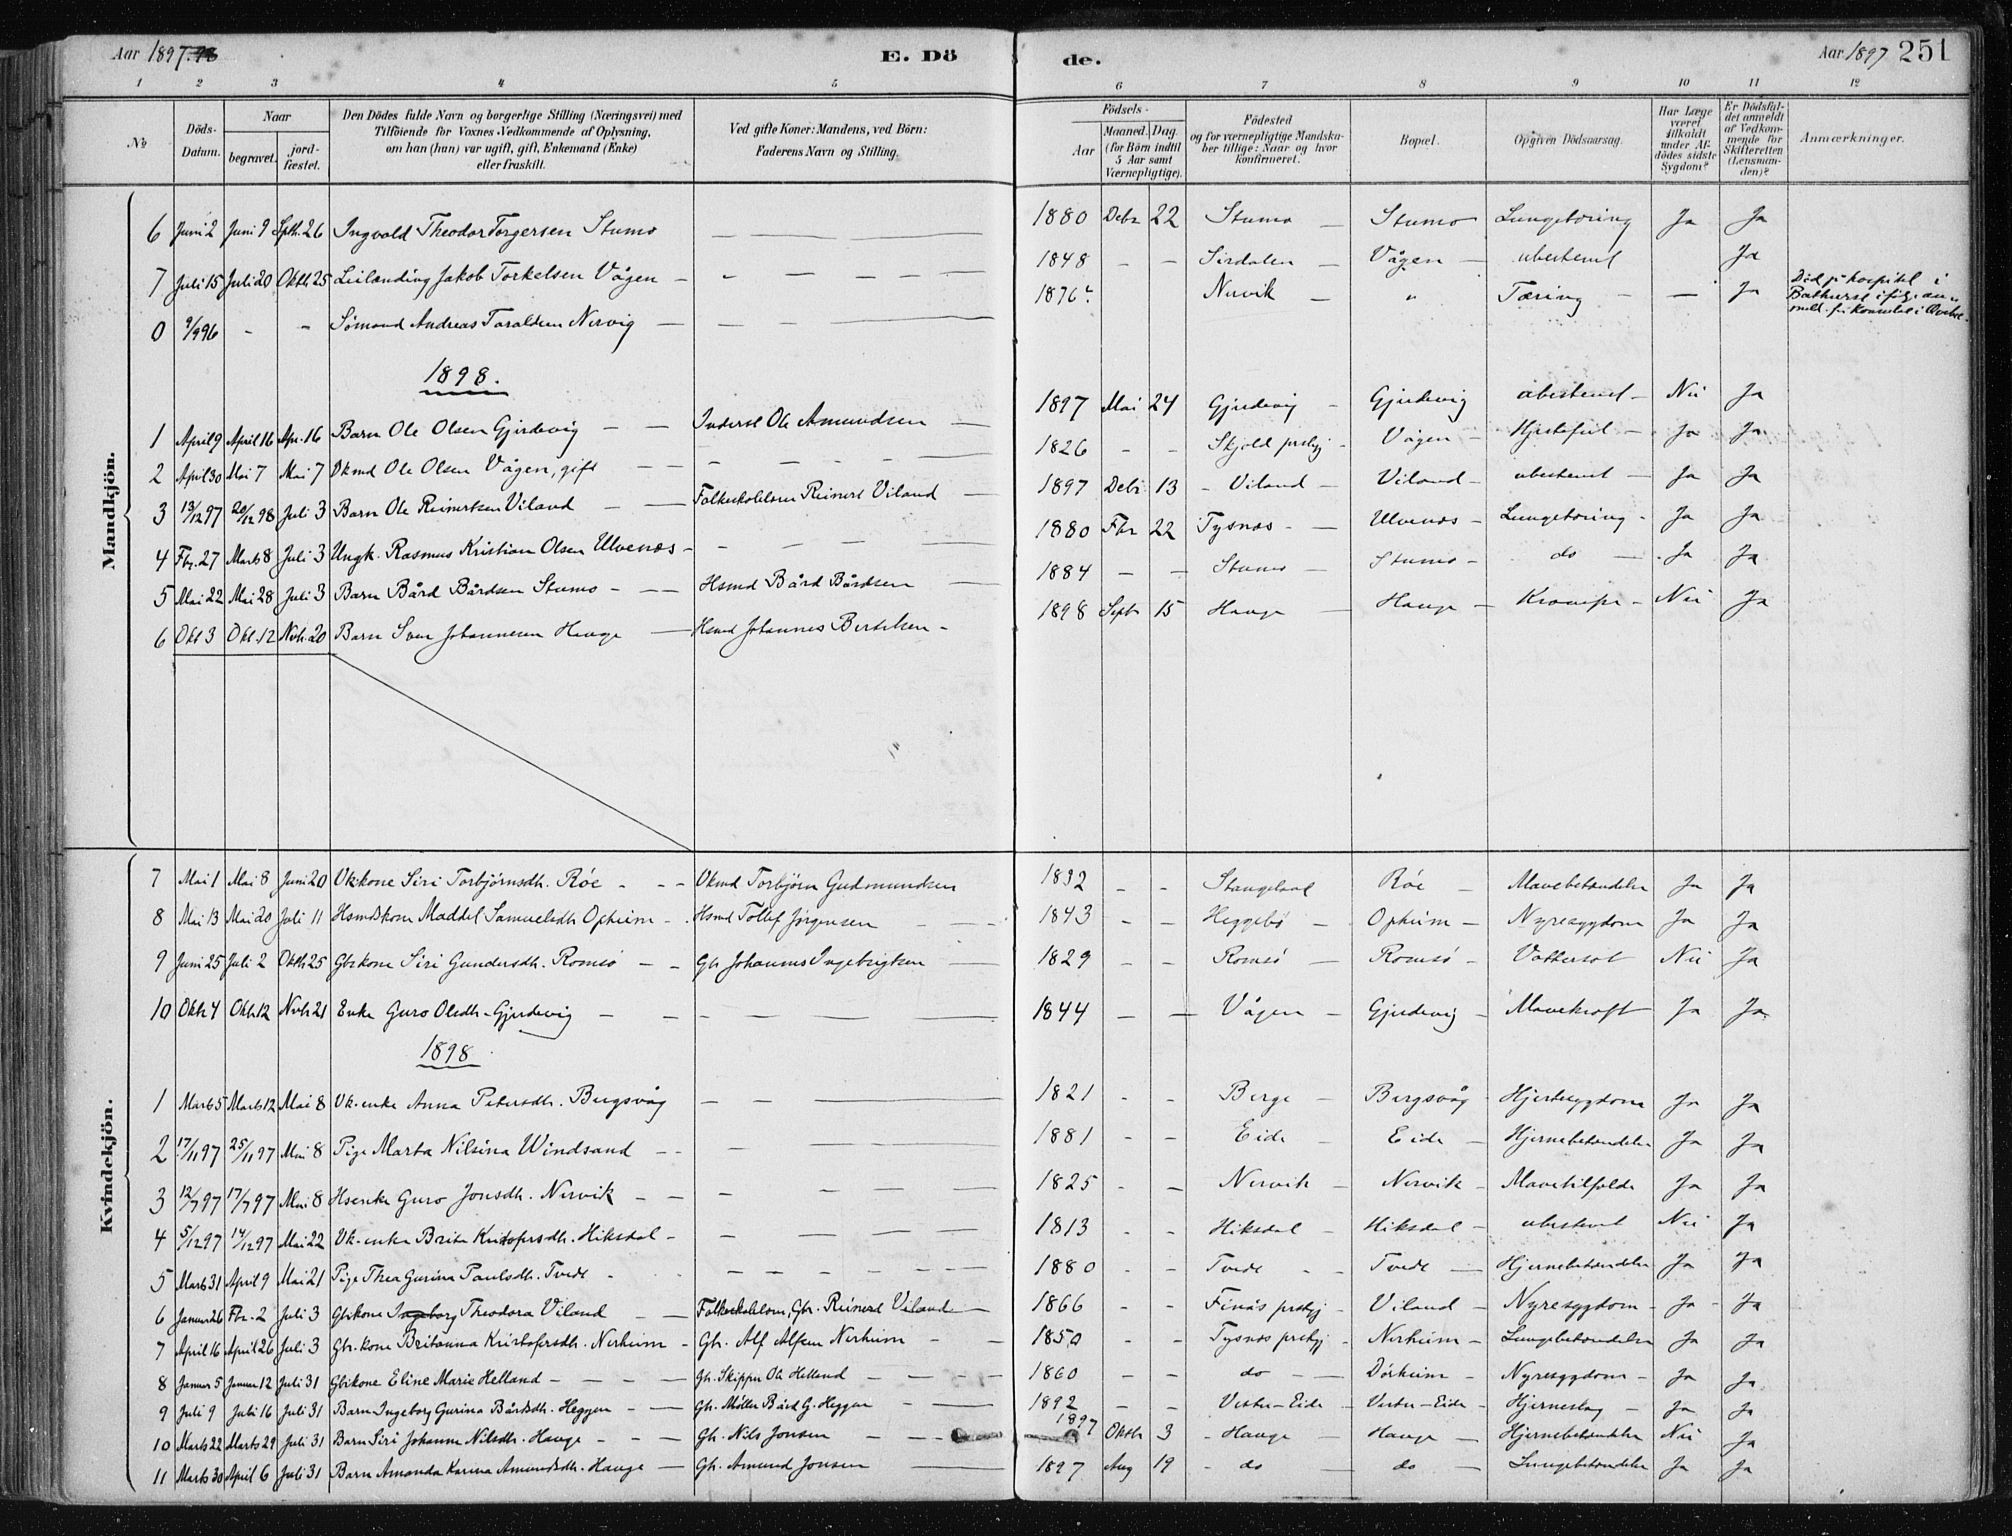 Aar 1897.98 E. Dö de. Aar 1897 251
1 2 3 4 5 6 7 8 9 10 11 12
No Döds-Datum. Naar begravet. jordfæstet. Den Dödes fulde Navn og borgerlige Stilling (Næringsvei) med Tilföiende for Voxnes Vedkommende af Oplysning, om han (hun) var ugift, gift, Enkemand (Enke) eller fraskilt. Ved gifte Koner: Mandens, ved Börn: Faderens Navn og Stilling. Födsels- Aar Maaned. Dag. (for Börn indtil 5 Aar samt Værnepligtige). Födested og for værnepligtige Mandskaber tillige: Naar og hvor konfirmeret. Bopæl. Opgiven Dödsaarsag. Har Læge været tilkaldt under Afdödes sidste Sygdom? Er Dödsfaldet anmeldt af Vedkommende for Skifteretten (Lensmanden)? Anmærkninger.
Mandkjön.
6 Juni 2 Juni 9 Spth. 26 Ingvald Theodor Torgersen Stumo — 1880 Debr 22 Stumo — Stumo Lungetæring Ja Ja
7 Juli 15 Juli 20 Oktb 25 Leilænding Jakob Torkelsen Vågen — 1848 - - Sirdalen — Vågen — ubestemt Ja
0 9/9 96 - " Sömand Andreas Taraldsen Nervig — 1876 Nervik — " Tæring — — Ja Død på hospital i Bathurst ifølge anmeld. fra Konsulat i
1898.
1 April 9 April 16 Apr. 16 Barn Ole Olsen Gjerdevig — Inderst Ole Amundsen — 1897 Mai 24 Gjerdevig — Gjerdevig ubestemt — Nei Ja
2 April 30 Mai 7 Mai 7 Vkmd Ole Olsen Vågen, gift — 1826 - - Skjold prstgj - Vågen — Hjertefeil — Ja Ja
3 13/12 97 20/12 98 Juli 3 Barn Ole Reinertsen Viland — Folkeskolelærer Reinert Viland — 1897 Debr 13 - Viland — Viland - ubestemt — Ja Ja
4 Fbr. 27 Marts 8 Juli 3 Ungk. Rasmus Kristian Olsen Ulvenæs — 1880 Fbr 22 Tysnæs — Ulvenæs — Lungetæring - Ja Ja
5 Mai 22 Mai 28 Juli 3 Barn Bård Bårdsen Stumo — Hsmd Bård Bårdsen — 1884 — - Stumo — Stumo — do — Ja Ja
6 Okt 3 Okt. 12 Nvb. 20 Barn Sven Johannesen Hauge — Hsmd Johannes Bertelsen - 1898 Sept 15 Hauge — Hauge — Krampe — Nei Ja
Kvindekjön.
7 Mai 1 Mai 8 Juni 20 Vk.kone Siri Torbjörnsdh. Röe - - - Vkmd Torbjörn Gudmundsen 1832 - - Stangeland Röe — Mavebetændelse Ja Ja
8 Mai 13 Mai 20 Juli 11 Hsmdskone Maddel Samuelsdh Opheim - Hsmd Tollef Jörgensen 1843 - - Heggebö — Opheim — Nyresygdom Ja Ja
9 Juni 25 Juli 2 Oktb 25 Gbkone Siri Gundersdh. Romsö — Gb. Johannes Ingebrigtsen 1829 - - Romsö — Romsö — Vattersot Nei Ja
10 Oktb 4 Oktb 12 Nvbr 21 Enke Guro Olsdh. Gjerdevig — 1844 — Vågen — Gjerdevig — Mavekræft Ja Ja
1898
1 Marts 5 Marts 12 Mai 8 Vk-enke Anna Petersdh. Bergsvåg — 1821 - - Berge — Bergsvåg — Hjertesygdom Ja Ja
2 17/11 97 25/11 97 Mai 8 Pige Marta Nilsina Windsand — 1881 - - Eide — Eide — Hjernebetændelse Ja Ja
3 12/7 97 17/7 97 Mai 8 Hsenke Guro Jonsdh. Nervik — 1825 - - Nervik — Nervik — Mavetilfælde Ja Ja
4 5/12 97 14/12 97 Mai 22 Vk-enke Brita Kristofersdh. Hiksdal — 1813 - - Hiksdal — Hiksdal — ubestemt Nei Ja
5 Marts 31 April 9 Mai 21 Pige Thea Gurina Paulsdh. Tvede — 1880 - - Tvede - - Tvede — Hjernebetændelse Ja Ja
6 Januar 26 Fbr. 2 Juli 3 Gbkone Ingeborg Theodora Viland — Folkeskolelærer, Gbr. Reinert Viland — 1866 - - Finås prstgj — Viland — Nyresygdom — Ja Ja
7 April 16 April 26 Juli 3 Gbr.kone Britanna Kristofersdh. Nerheim — Gb. Alf Alfsen Nerheim — 1850 - - Tysnæs prstgj — Nerheim — Lungebetændelse Ja Ja
8 Januar 5 Januar 12 Juli 31 Gbkone Eline Marie Helland — Gb. Skipper Ole Helland — 1860 - - do — Dörheim — Nyresygdom — Ja Ja
9 Juli 9 Juli 16 Juli 31 Barn Ingeborg Gurina Bårdsdh. Heggen — Gb. Möller Bård G. Heggen — 1892 — - Vestre-Eide — Vestre-Eide — Hjerneslag — Ja Ja
10 Marts 22 Marts 29 Juli 31 Barn Siri Johanne Nilsdh. Hauge — Gb. Nils Jonsen — 1897 Oktb 3 - Hauge — Hauge — Hjernebetændelse Nei Ja
11 Marts 30 April 6 Juli 31 Barn Amanda Karina Amundsdh. Hauge — Gb. Amund Jonsen — 1897 Aug 19 - do — do — Lungebetændelse Ja Ja